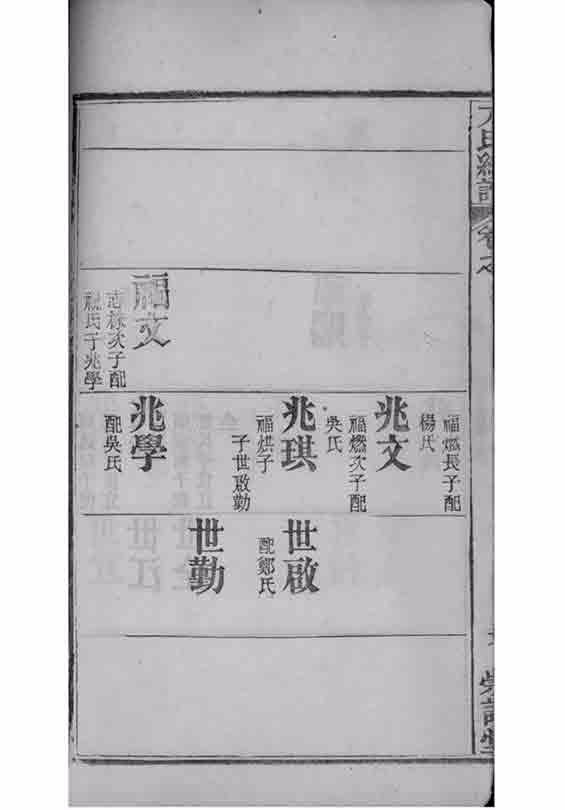 福文
志次子配
祝氏子兆學
福燃長子配
楊氏
兆文
福燃次子配
吳氏
兆琪
福烘子
子世啟勤
兆學
配吳氏
世啟
配鄭氏
世勤